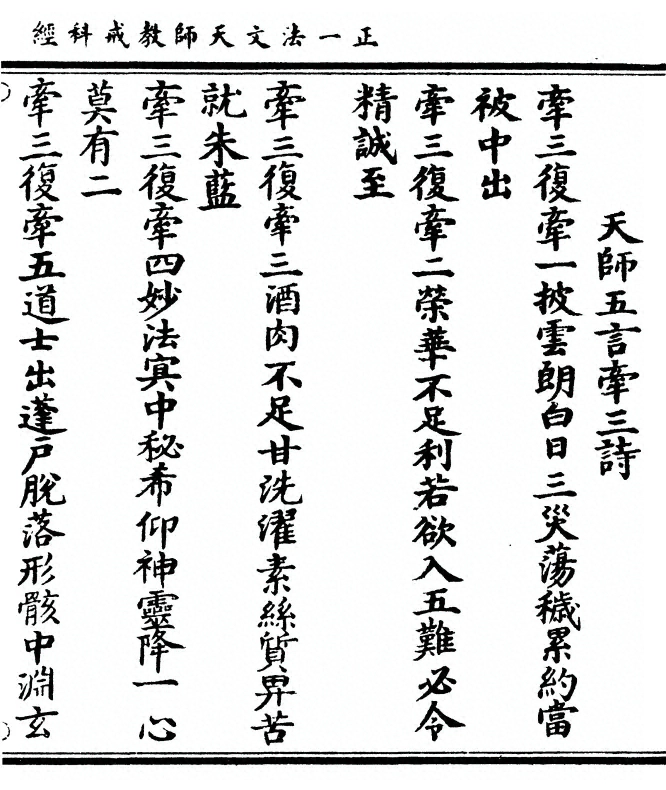 正一法文天師教戒科經
天師五言牽三詩
牽三復牽一披雲朗白日三災蕩穢累約當
被中出
牽三復牽二榮華不足利若欲入五難必令
精誠至
牽三復牽三酒肉不足甘洗濯素絲質畀苦
就朱藍
牽三復牽四妙法寘中秘希仰神靈降一心
莫有二
牽三復牽五道士出蓬戶脫落形骸中淵玄